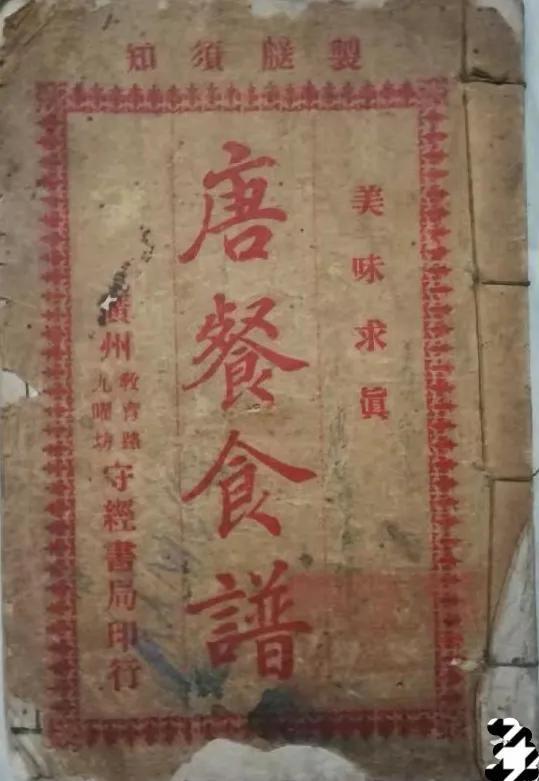 製膳須知
美味求眞
唐餐食譜
廣州教育路九曜坊守經書局印行